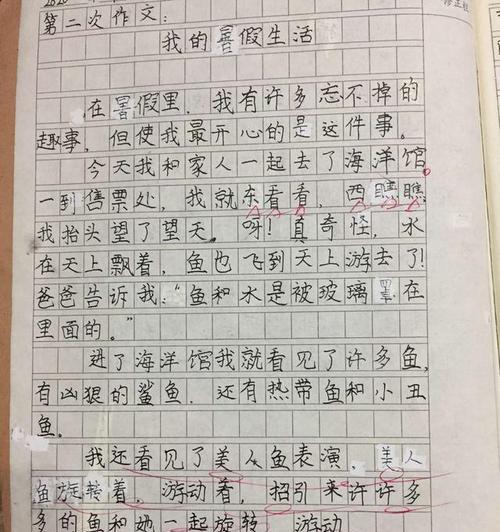 第二次作文：
我的暑假生活
在暑假里，我有许多忘不掉的
趣事，但使我最开心的是这件事。
今天我和家人一起去了海洋馆。
一到售票处，我就东看看，西瞧瞧
我抬头望了望天。呀！真奇怪，水
在天上飘着，鱼也飞到天上游去了！
爸爸告诉我：“鱼和水是被玻璃罩在
里面的。”
进了海洋馆我就看见了许多鱼，
有凶狠的鲨鱼．还有热带鱼和小丑
鱼。
我还看见了美人鱼表演，美人
鱼旋转着，游动着，招引来许许多
多的鱼和她一起旋转 游动